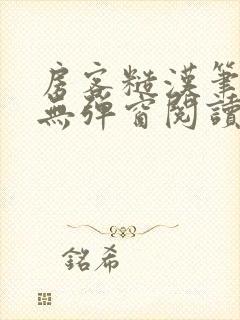 房客糙漢筆
無彈窗閱讀
銘希